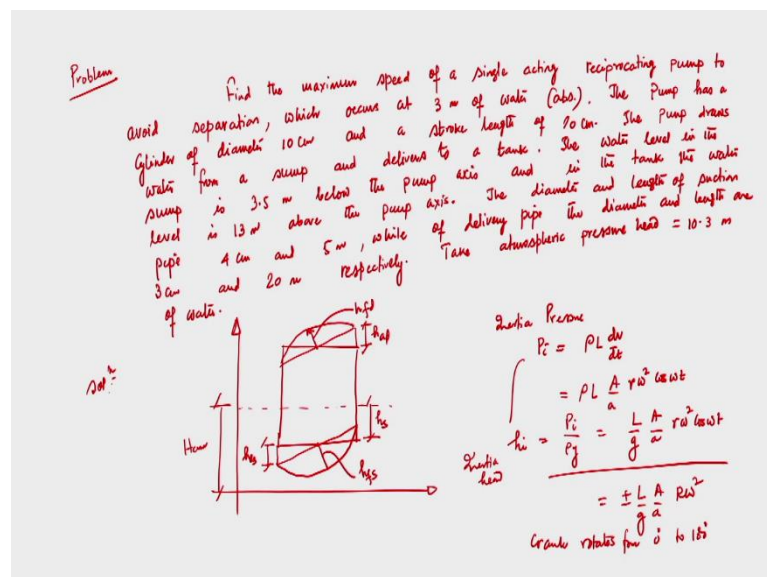 Problem
Find the maximum speed of a single acting reciprocating pump to
avoid separation, which occurs at 3 m of water (abs.). The Pump has a
Cylinder of diameter 10 cm and a stroke length of 20 cm. The pump draws
water from a sump and delivers to a tank. The water level in the
sump is 3.5 m below the pump axis and in the tank the water
level is 13 m above the pump axis. The diameter and length of suction
pipe 4 cm and 5 m, while of delivery pipe the diameter and length are
3 cm and 20 m respectively. Take atmospheric pressure head = 10.3 m
of water.
solⁿ:
hfd
had
hs
Hatm
has
hfs
Inertia Pressure
Pi = ρL dv/dt
= ρL A/a rω² cosωt
Inertia head hi = Pi/ρg = L/g A/a rω² cosωt
= ± L/g A/a Rω²
Crank rotates from 0° to 180°